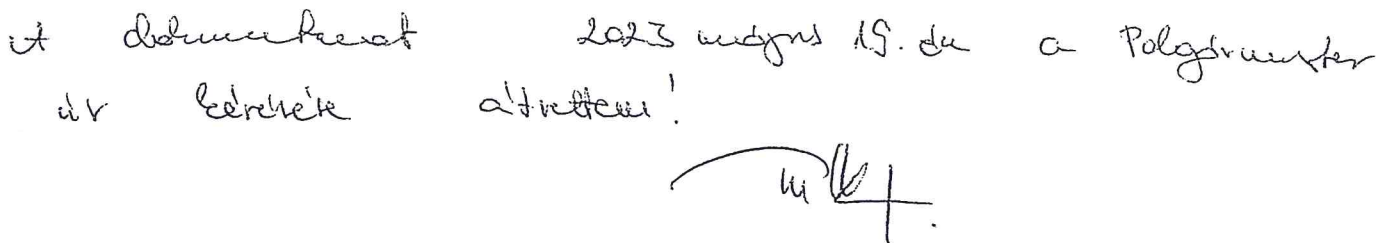 A dokumentumot 2023 május 15.-én a Polgármester
úr kérésére átvettem!